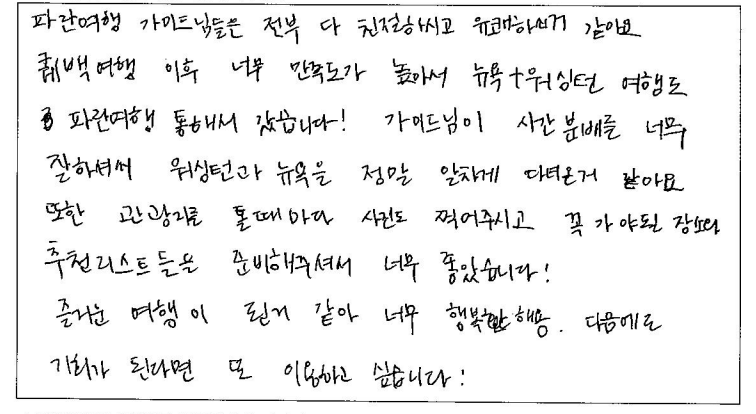 파란여행 가이드님들은 전부 다 친절하시고 유쾌하신거 같아요
퀘백여행 이후 너무 만족도가 높아서 뉴욕+워싱턴 여행도
파란여행 통해서 갔습니다! 가이드님이 시간 분배를 너무
잘하셔서 워싱턴과 뉴욕을 정말 알차게 다녀온거 같아요
또한 관광지를 돌때마다 사진도 찍어주시고 꼭 가야된 장소와
추천리스트들을 준비해주셔서 너무 좋았습니다!
즐거운 여행이 된거 같아 너무 행복해용. 다음에도
기회가 된다면 또 이용하고 싶습니다!